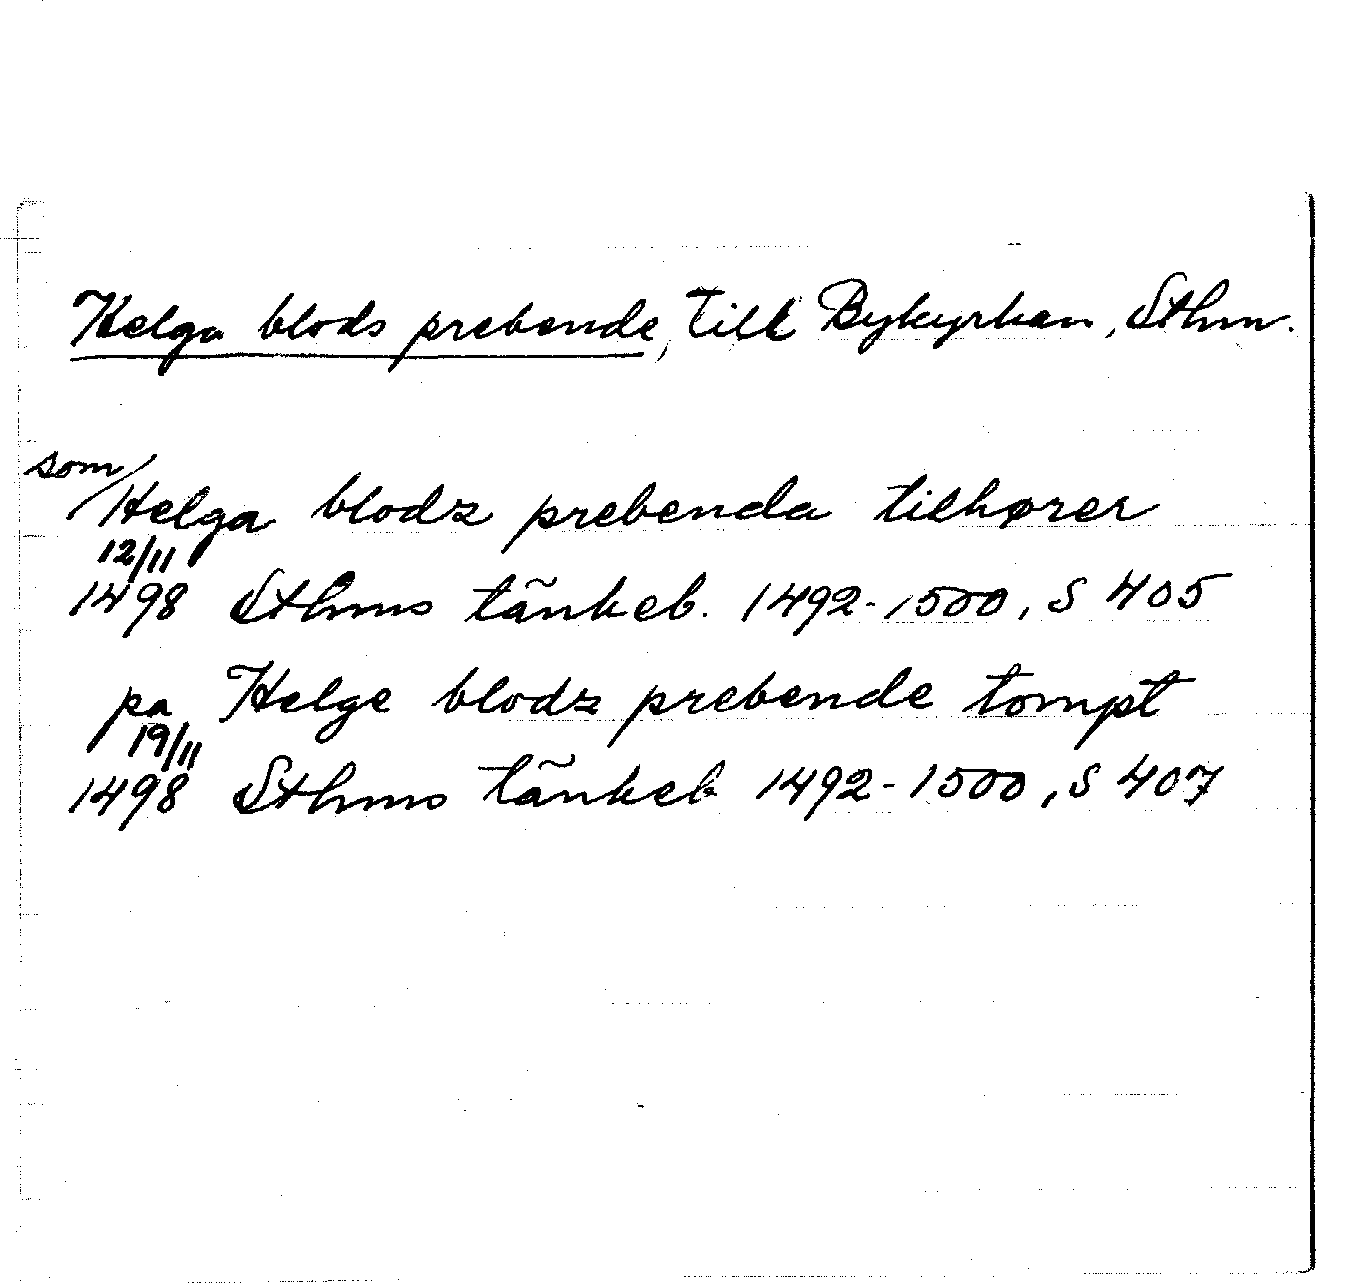 Helga blods prebende, till Bykyrkan, Sthm.
som/
Helga blodz prebenda tilhører
12/11
1498 Sthms tänkeb. 1492-1500, S 405
pa Helge blodz prebende tompt
19/11
1498 Sthms tänkeb 1492-1500, S 407